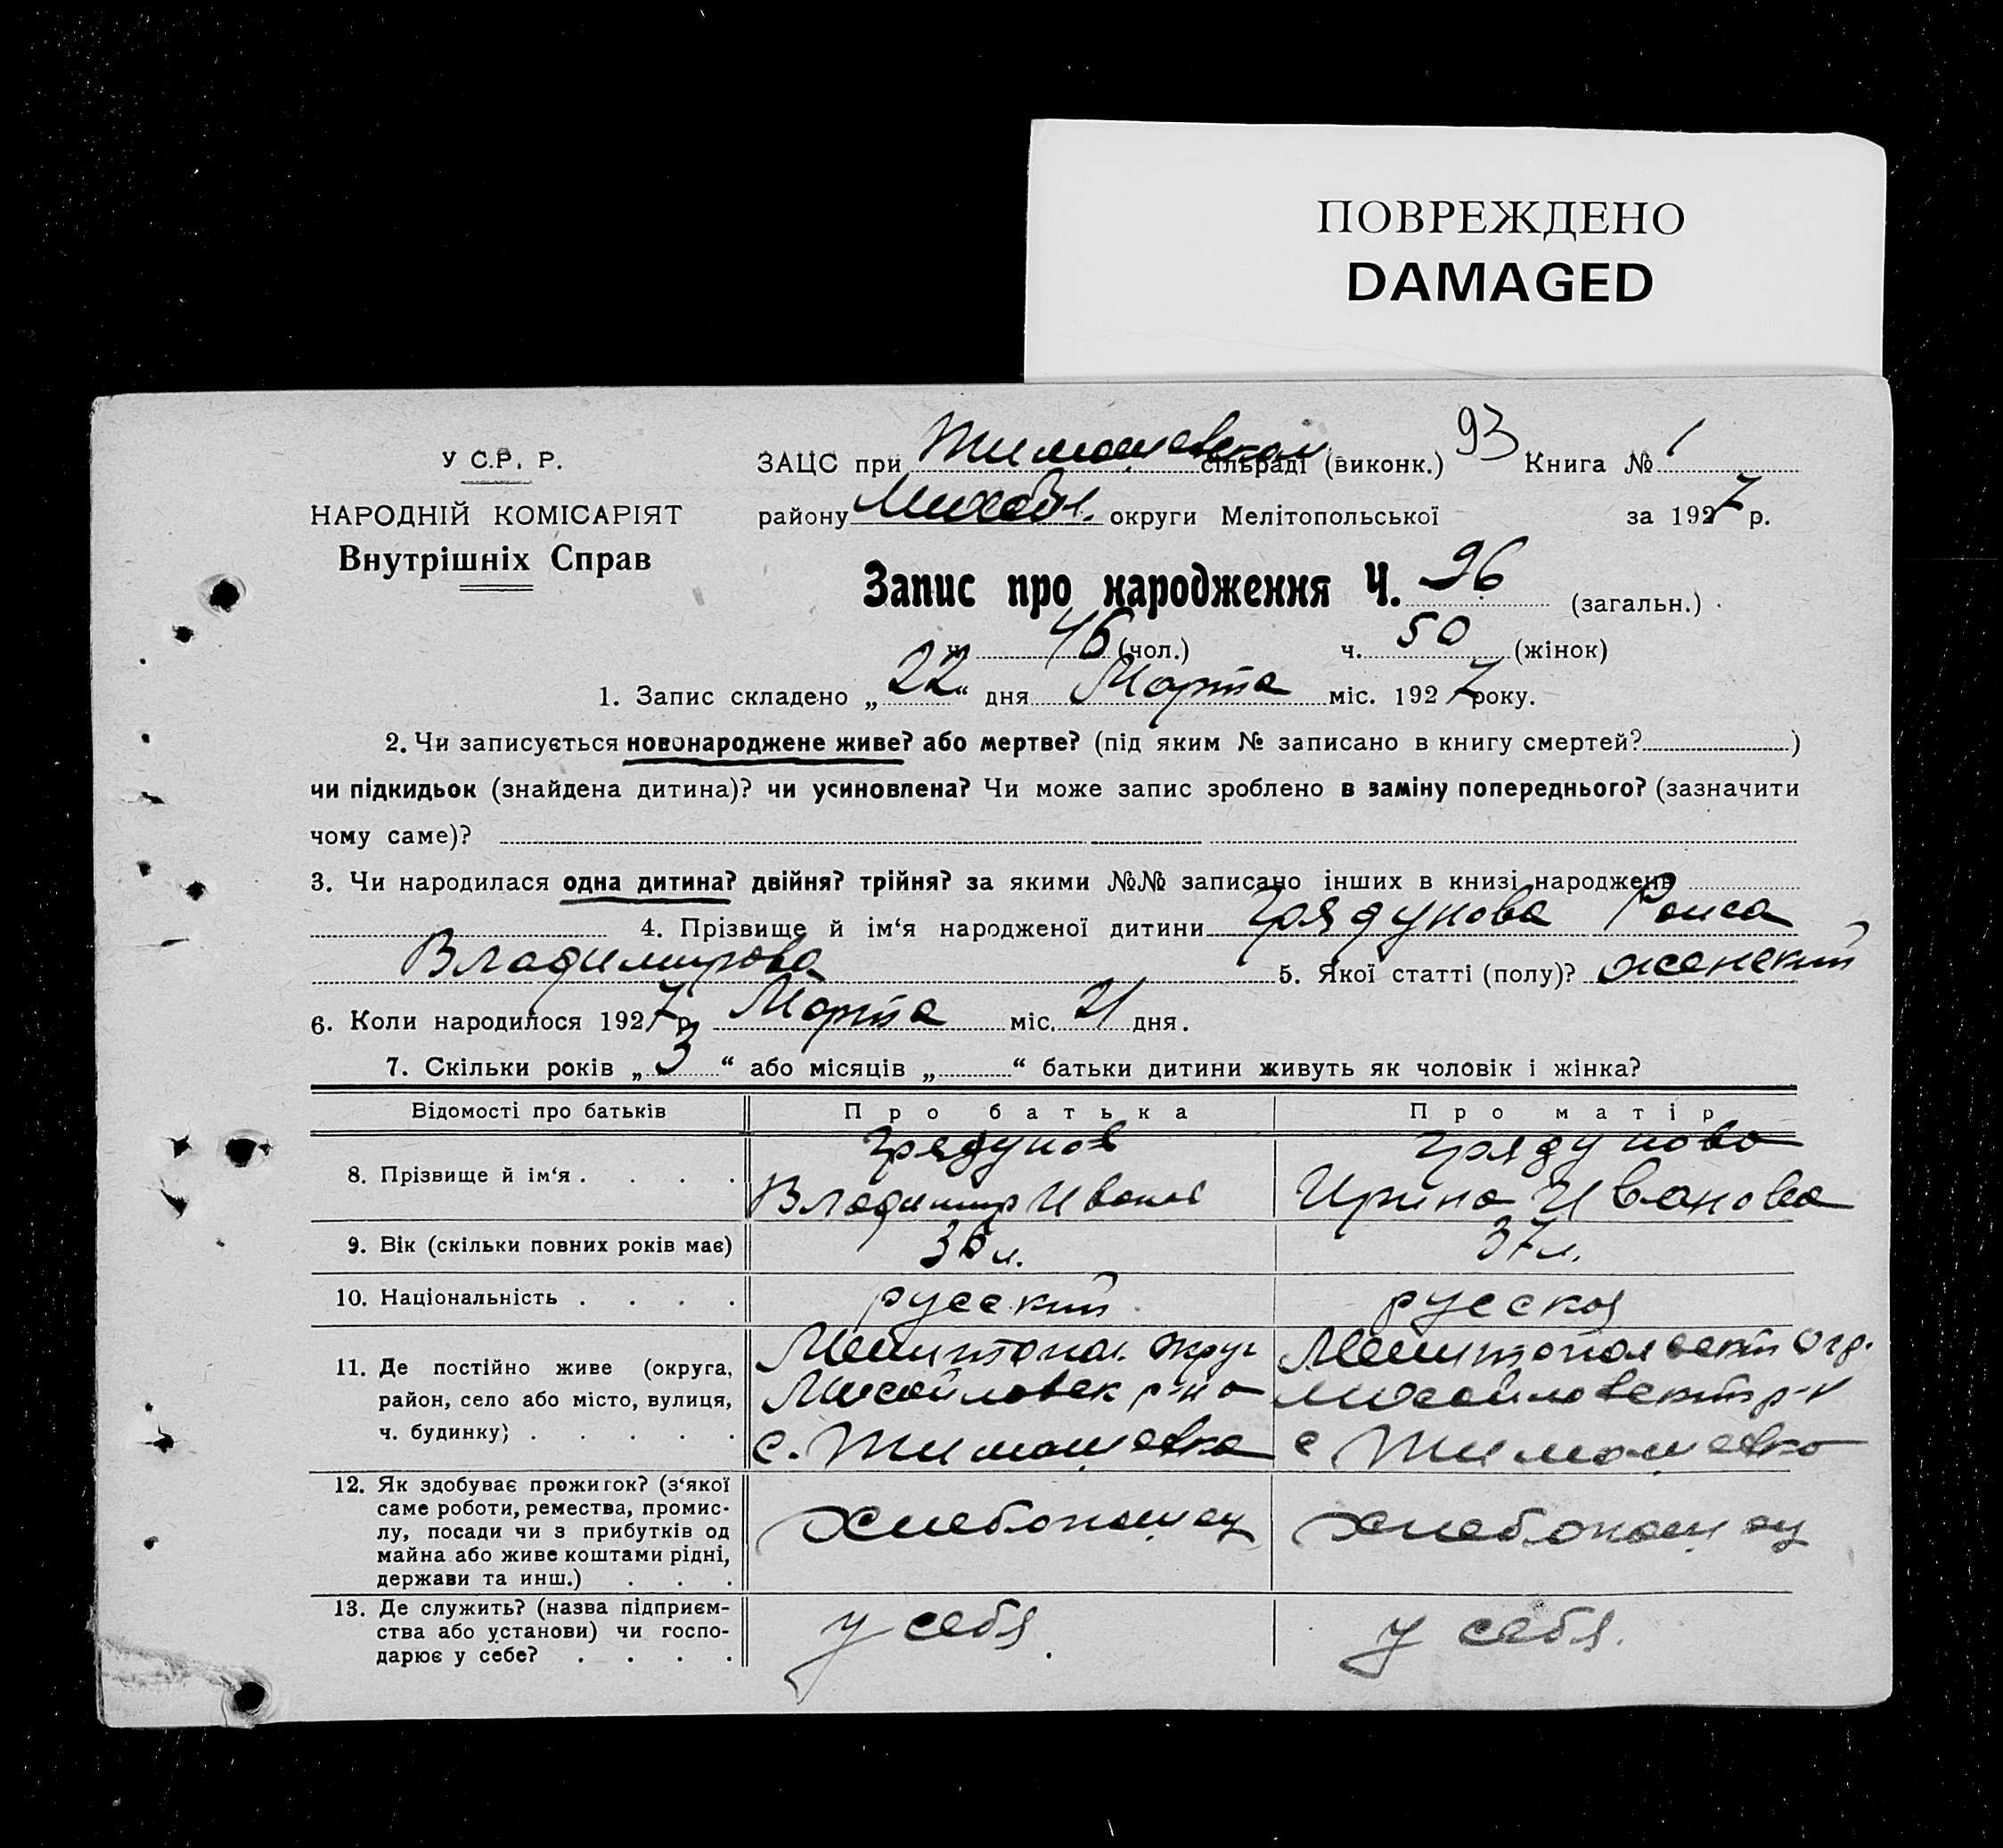 ПОВРЕЖДЕНО
DAMAGED
У С.Р. Р.
НАРОДНІЙ КОМІСАРІЯТ
Внутрішніх Справ
ЗАЦС при Тимошевском сільраді (виконк.) 93 Книга № 1
району Михайл. округи Мелітопольської за 1927 р.
Запис про народження Ч. 96 (загальн.)
ч. 46 (чол.) ч. 50 (жінок)
1. Запис складено „22“ дня Марта міс. 1927 року.
2. Чи записується новонароджене живе? або мертве? (під яким № записано в книгу смертей? )
чи підкидьок (знайдена дитина)? чи усиновлена? Чи може запис зроблено в заміну попереднього? (зазначити
чому саме)?
3. Чи народилася одна дитина? двійня? трійня? за якими №№ записано інших в книзі народжень
4. Прізвище й ім‘я народженої дитини Грядунова Раиса
Владимирова 5. Якої статті (полу)? женский
6. Коли народилося 1927 р. Марта міс. 21 дня.
7. Скільки років „3“ або місяців „ “ батьки дитини живуть як чоловік і жінка?
Відомості про батьків Про батька Про матір
8. Прізвище й ім‘я . . . . Грядунов Владимир Иванов Грядунова Ирина Иванова
9. Вік (скільки повних років має) 36 л. 37 л.
10. Національність . . . . русский русская
11. Де постійно живе (округа, Мелитопол. округ Мелитопольский окр.
район, село або місто, вулиця, Михайловск р-на Михайловский р-н
ч. будинку) . . . . . с. Тимошевка с Тимошевка
12. Як здобуває прожиток? (з‘якої
саме роботи, ремества, промис-
лу, посади чи з прибутків од хлебопашец хлебопашец
майна або живе коштами рідні,
держави та инш.) . . .
13. Де служить? (назва підприєм-
ства або установи) чи госпо- у себя. у себя.
дарює у себе? . . . .